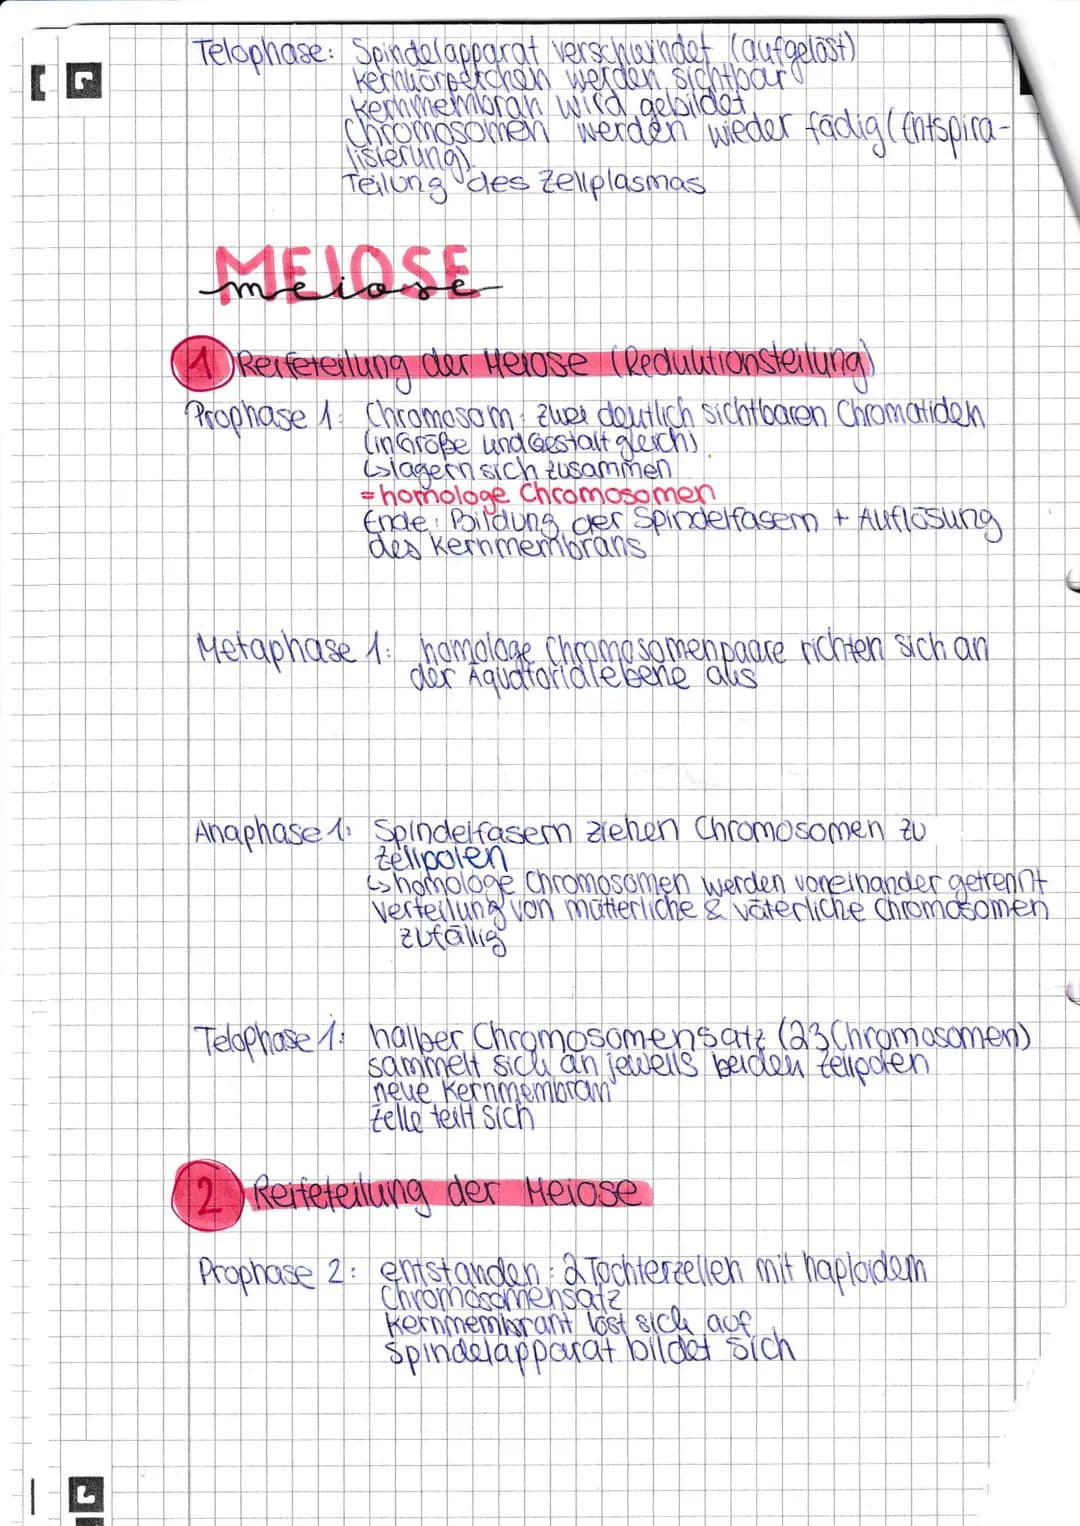 Telophase: Spindelapparat verschwindet (aufgelöst)
Kernkörperchen werden sichtbar
Kernmembran wird gebildet
Chromosomen werden wieder fädig (Entspira-
lisierung)
Teilung des Zellplasmas
MEIOSE
meiose
1 Reifeteilung der Meiose (Reduktionsteilung)
Prophase 1: Chromosom: zwei deutlich sichtbaren Chromatiden
(in Größe und Gestalt gleich)
↳ lagern sich zusammen
= homologe Chromosomen
Ende: Bildung der Spindelfasern + Auflösung
des Kernmembrans
Metaphase 1: homologe Chromosomenpaare richten sich an
der Äquatorialebene aus
Anaphase 1: Spindelfasern ziehen Chromosomen zu
Zellpolen
↳ homologe Chromosomen werden voneinander getrennt
Verteilung von mütterliche & väterliche Chromosomen
zufällig
Telophase 1: halber Chromosomensatz (23 Chromosomen)
sammelt sich an jeweils beiden Zellpolen
neue Kernmembran
Zelle teilt sich
2 Reifeteilung der Meiose
Prophase 2: entstanden: 2 Tochterzellen mit haploidem
Chromosomensatz
Kernmembrant löst sich auf
Spindelapparat bildet sich